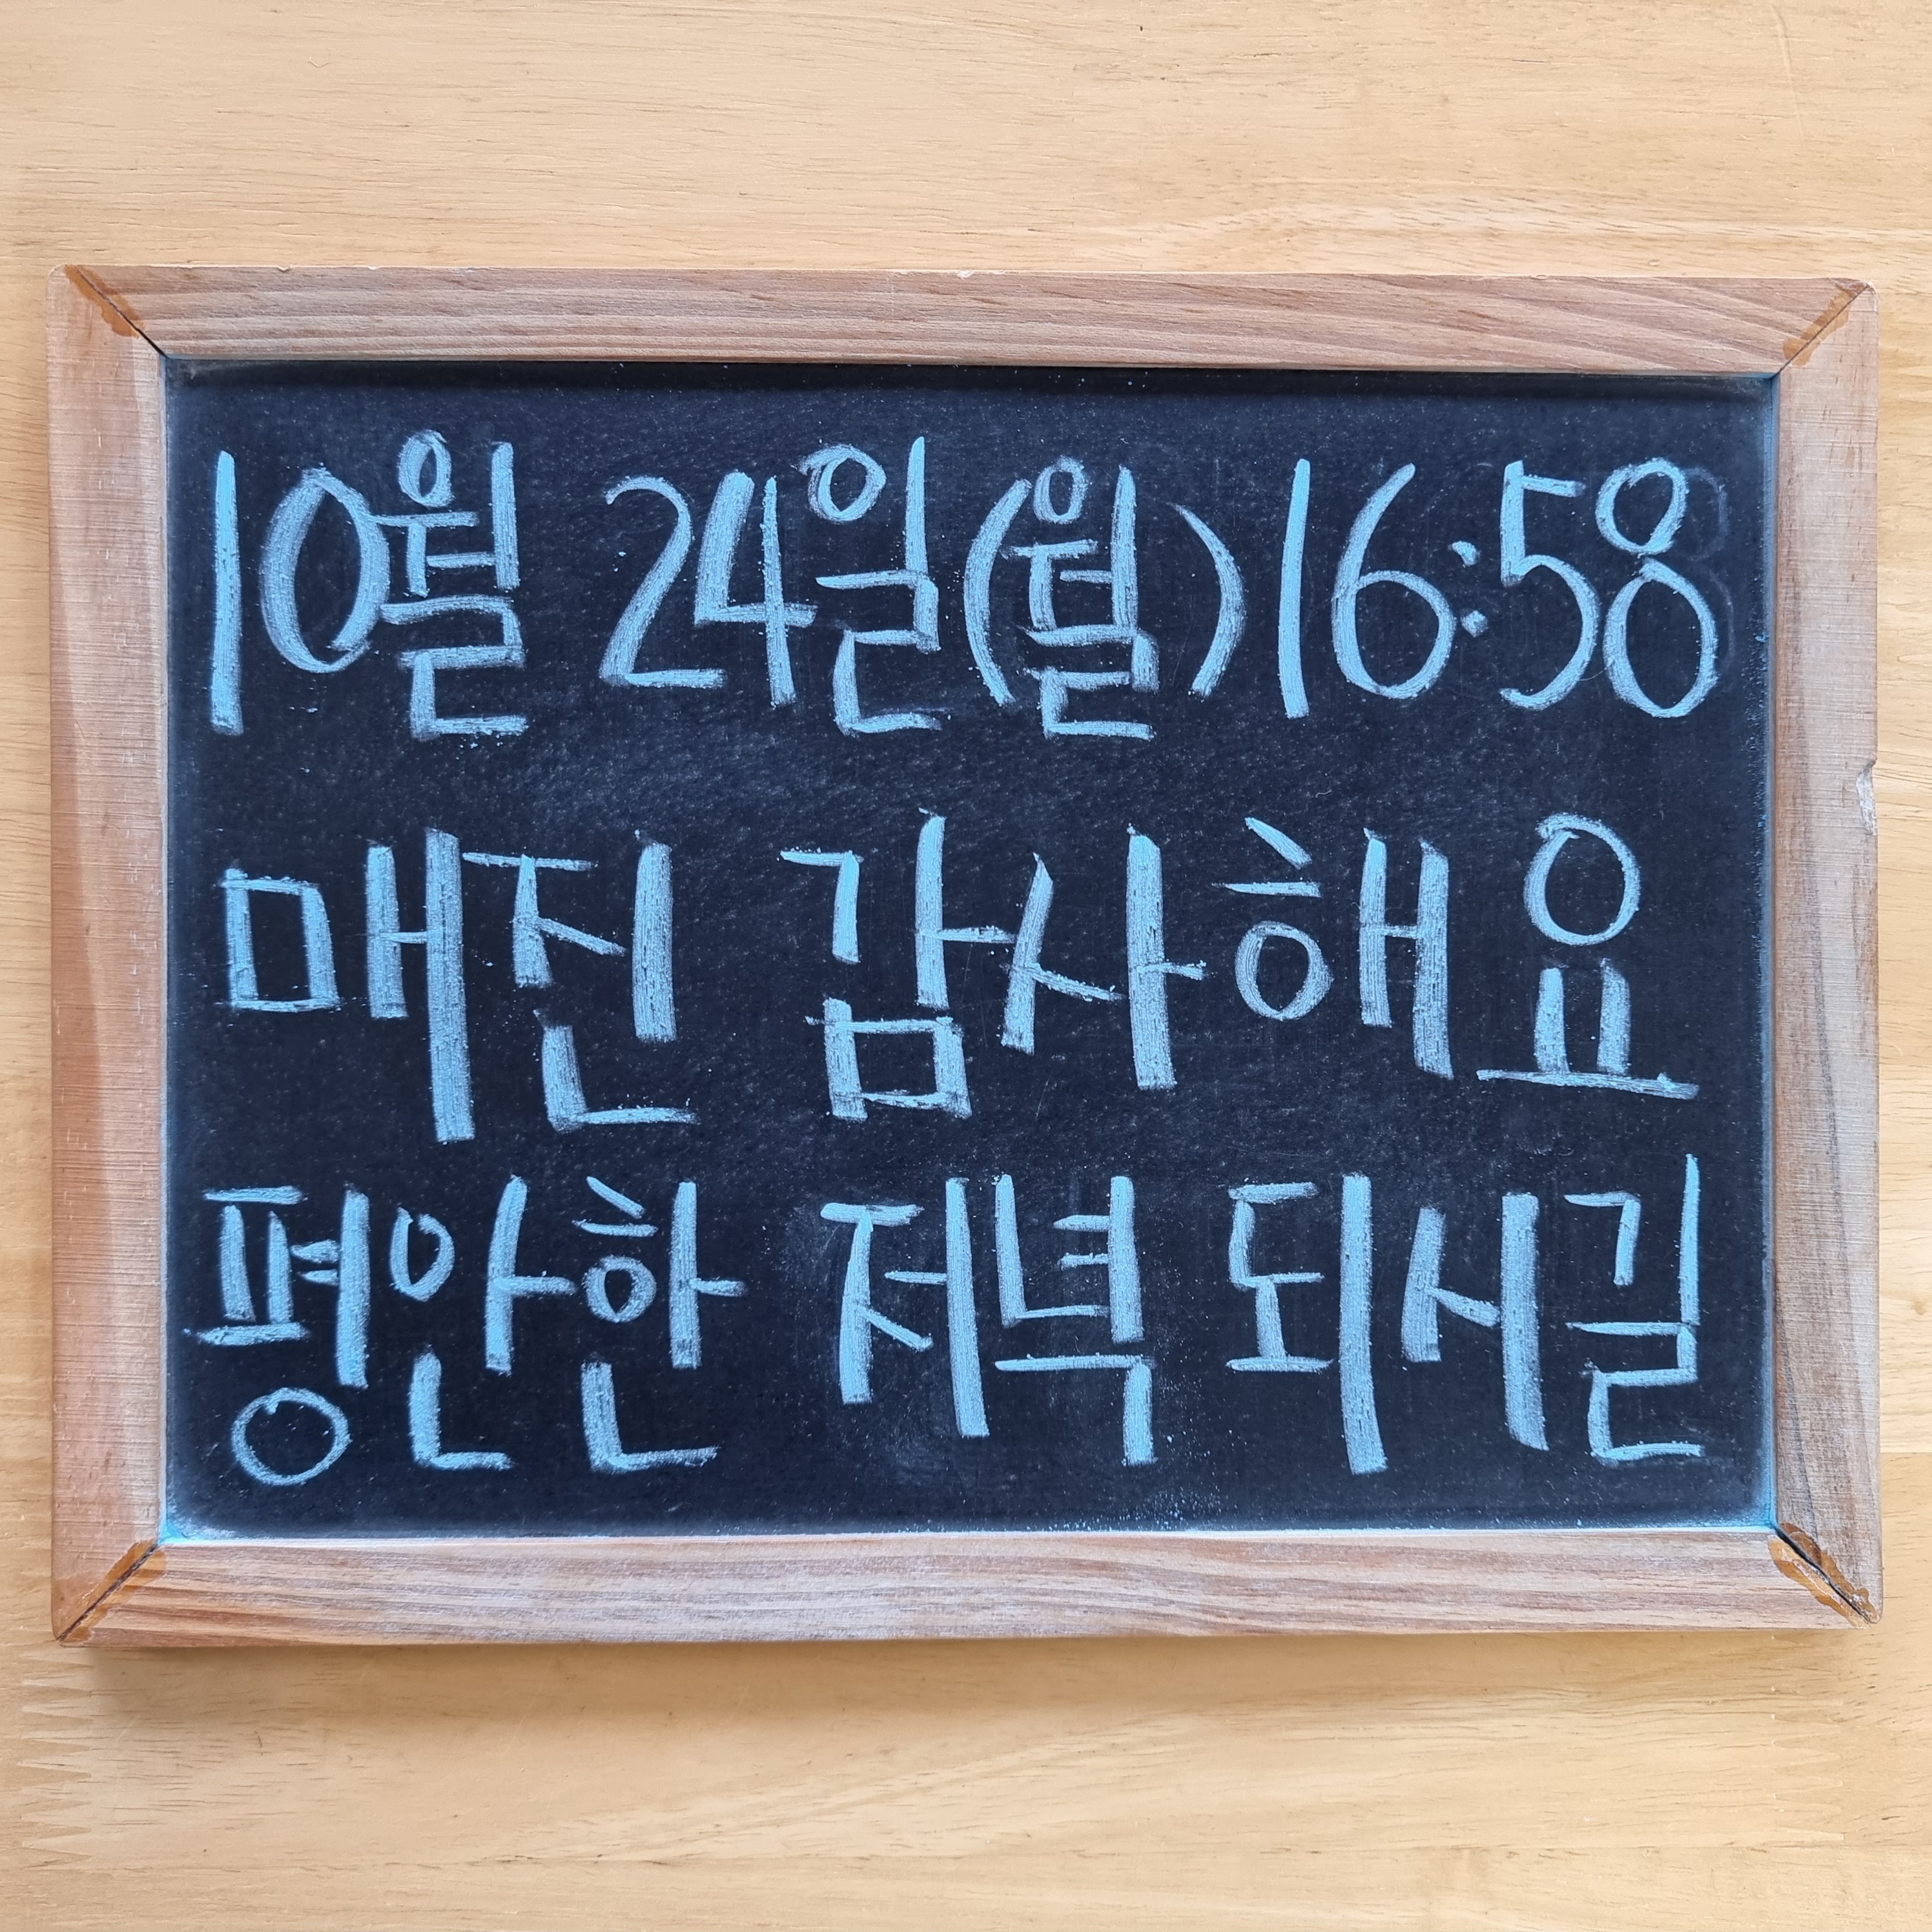 10월 24일(월) 16:58
매진 감사해요
평안한 저녁 되시길